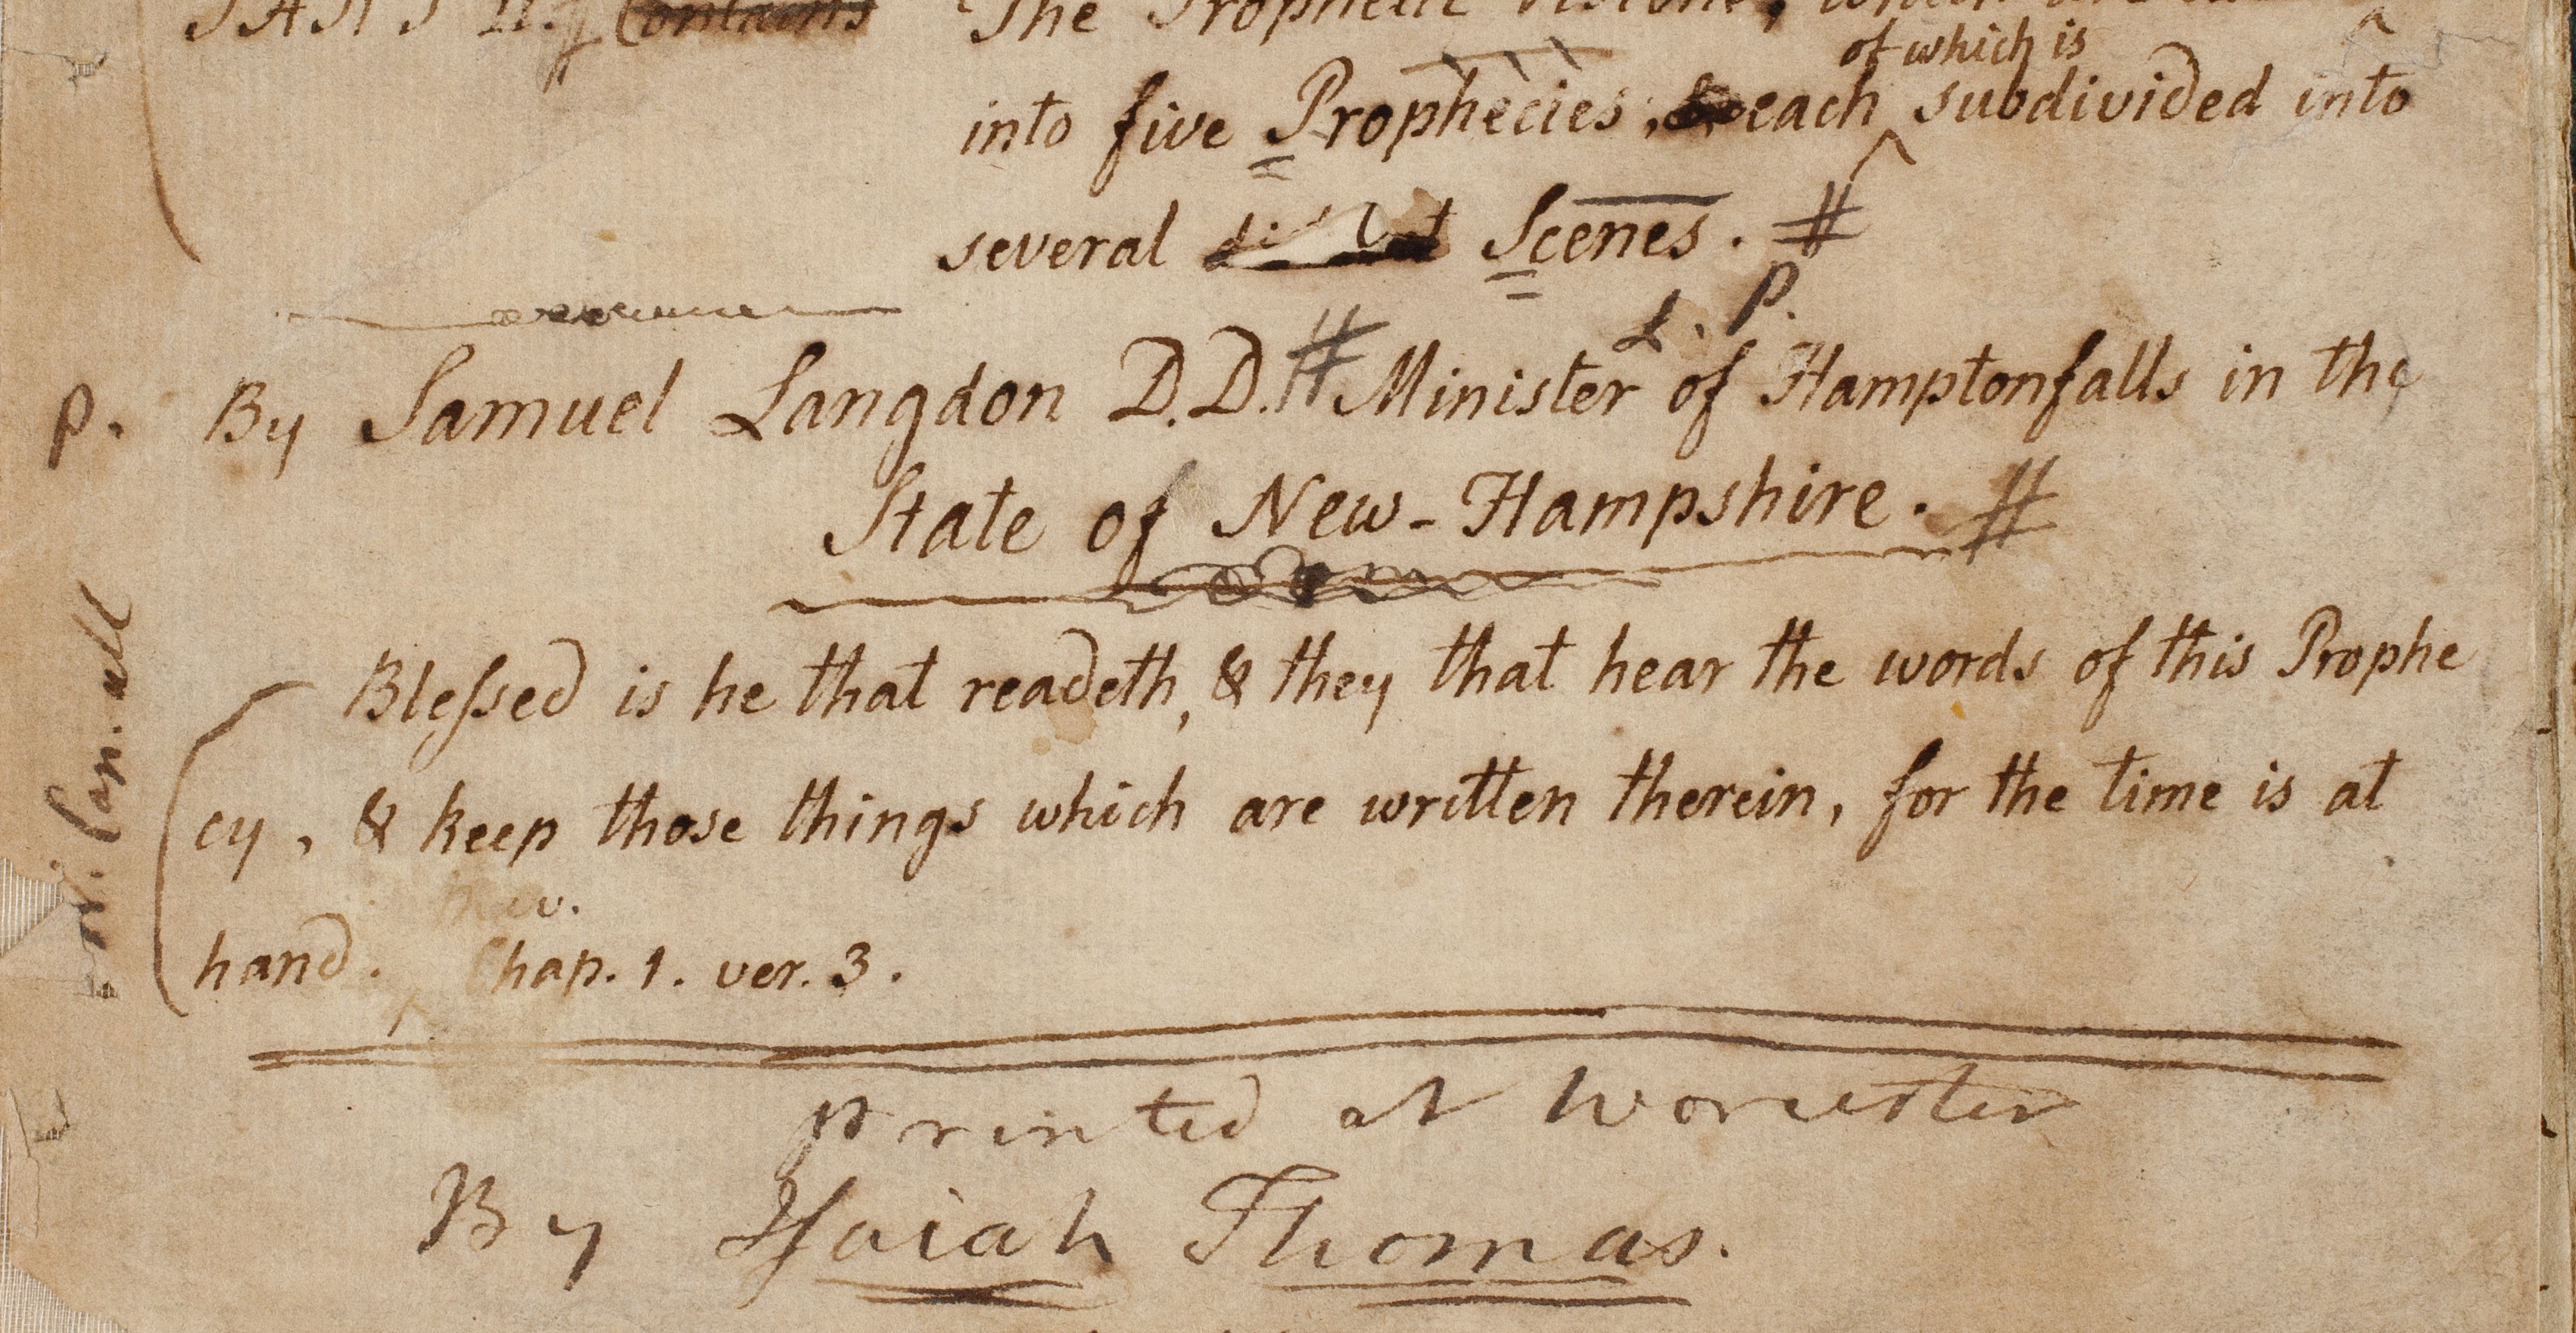 PART II. Contains The Prophetic Visions, which are
of which is
into five Prophecies, each subdivided into
several Scenes. #
L. P.
P. By Samuel Langdon D.D. # Minister of Hamptonfalls in the
State of New-Hampshire. #
Blessed is he that readeth, & they that hear the words of this Prophe
cy, & keep those things which are written therein, for the time is at
hand. Chap. 1. ver. 3.
printed at Worcester
By Isaiah Thomas.